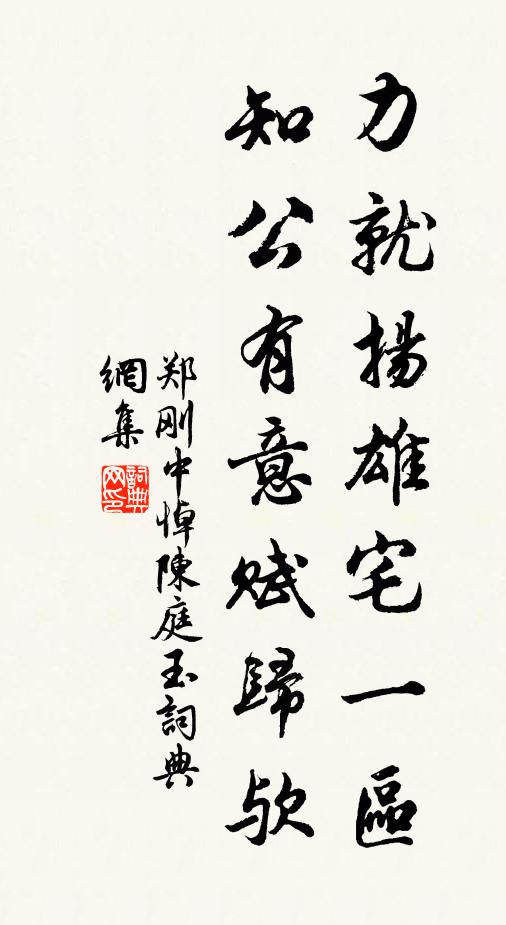 力就揚雄宅一區
知公有意賦歸欤
郑刚中悼陳庭玉詞典
網集
詞典
网印